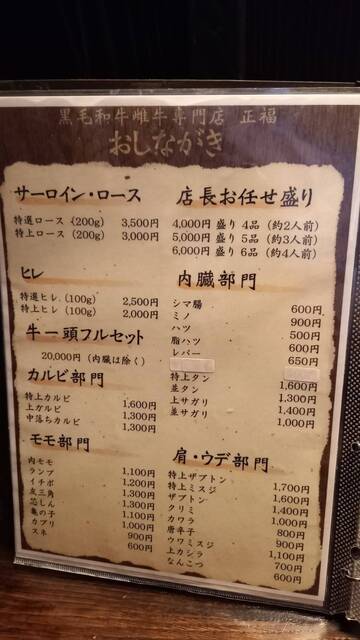 黒毛和牛雌牛専門店 正福
おしながき
サーロイン・ロース
特選ロース (200g) 3,500円
特上ロース (200g) 3,000円
ヒレ
特選ヒレ (100g) 2,500円
特上ヒレ (100g) 2,000円
牛一頭フルセット
20,000円 (内臓は除く)
カルビ部門
特上カルビ 1,600円
上カルビ 1,300円
中落ちカルビ 1,300円
モモ部門
内モモ 1,100円
ランプ 1,200円
イチボ 1,300円
友三角 1,300円
芯しん 1,100円
亀の子 1,000円
カブリ 900円
スネ 600円
店長お任せ盛り
4,000円 盛り 4品 (約2人前)
5,000円 盛り 5品 (約3人前)
6,000円 盛り 6品 (約4人前)
内臓部門
シマ腸 600円
ミノ 900円
ハツ 500円
脂ハツ 600円
レバー 650円
特上タン 1,600円
並タン 1,300円
上サガリ 1,400円
並サガリ 1,000円
肩・ウデ部門
特上ザブトン 1,700円
特上ミスジ 1,600円
ザブトン 1,400円
クリミ 1,000円
カワラ 800円
唐辛子 900円
ウワミスジ 1,100円
上カシラ 700円
なんこつ 600円